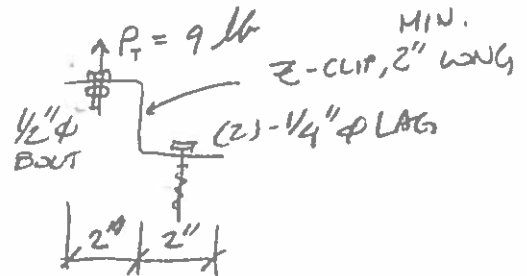 P_T = 9 lb
MIN.
Z-CLIP, 2" LONG
1/2"φ
BOLT
(2)-1/4"φ LAG
2"
2"